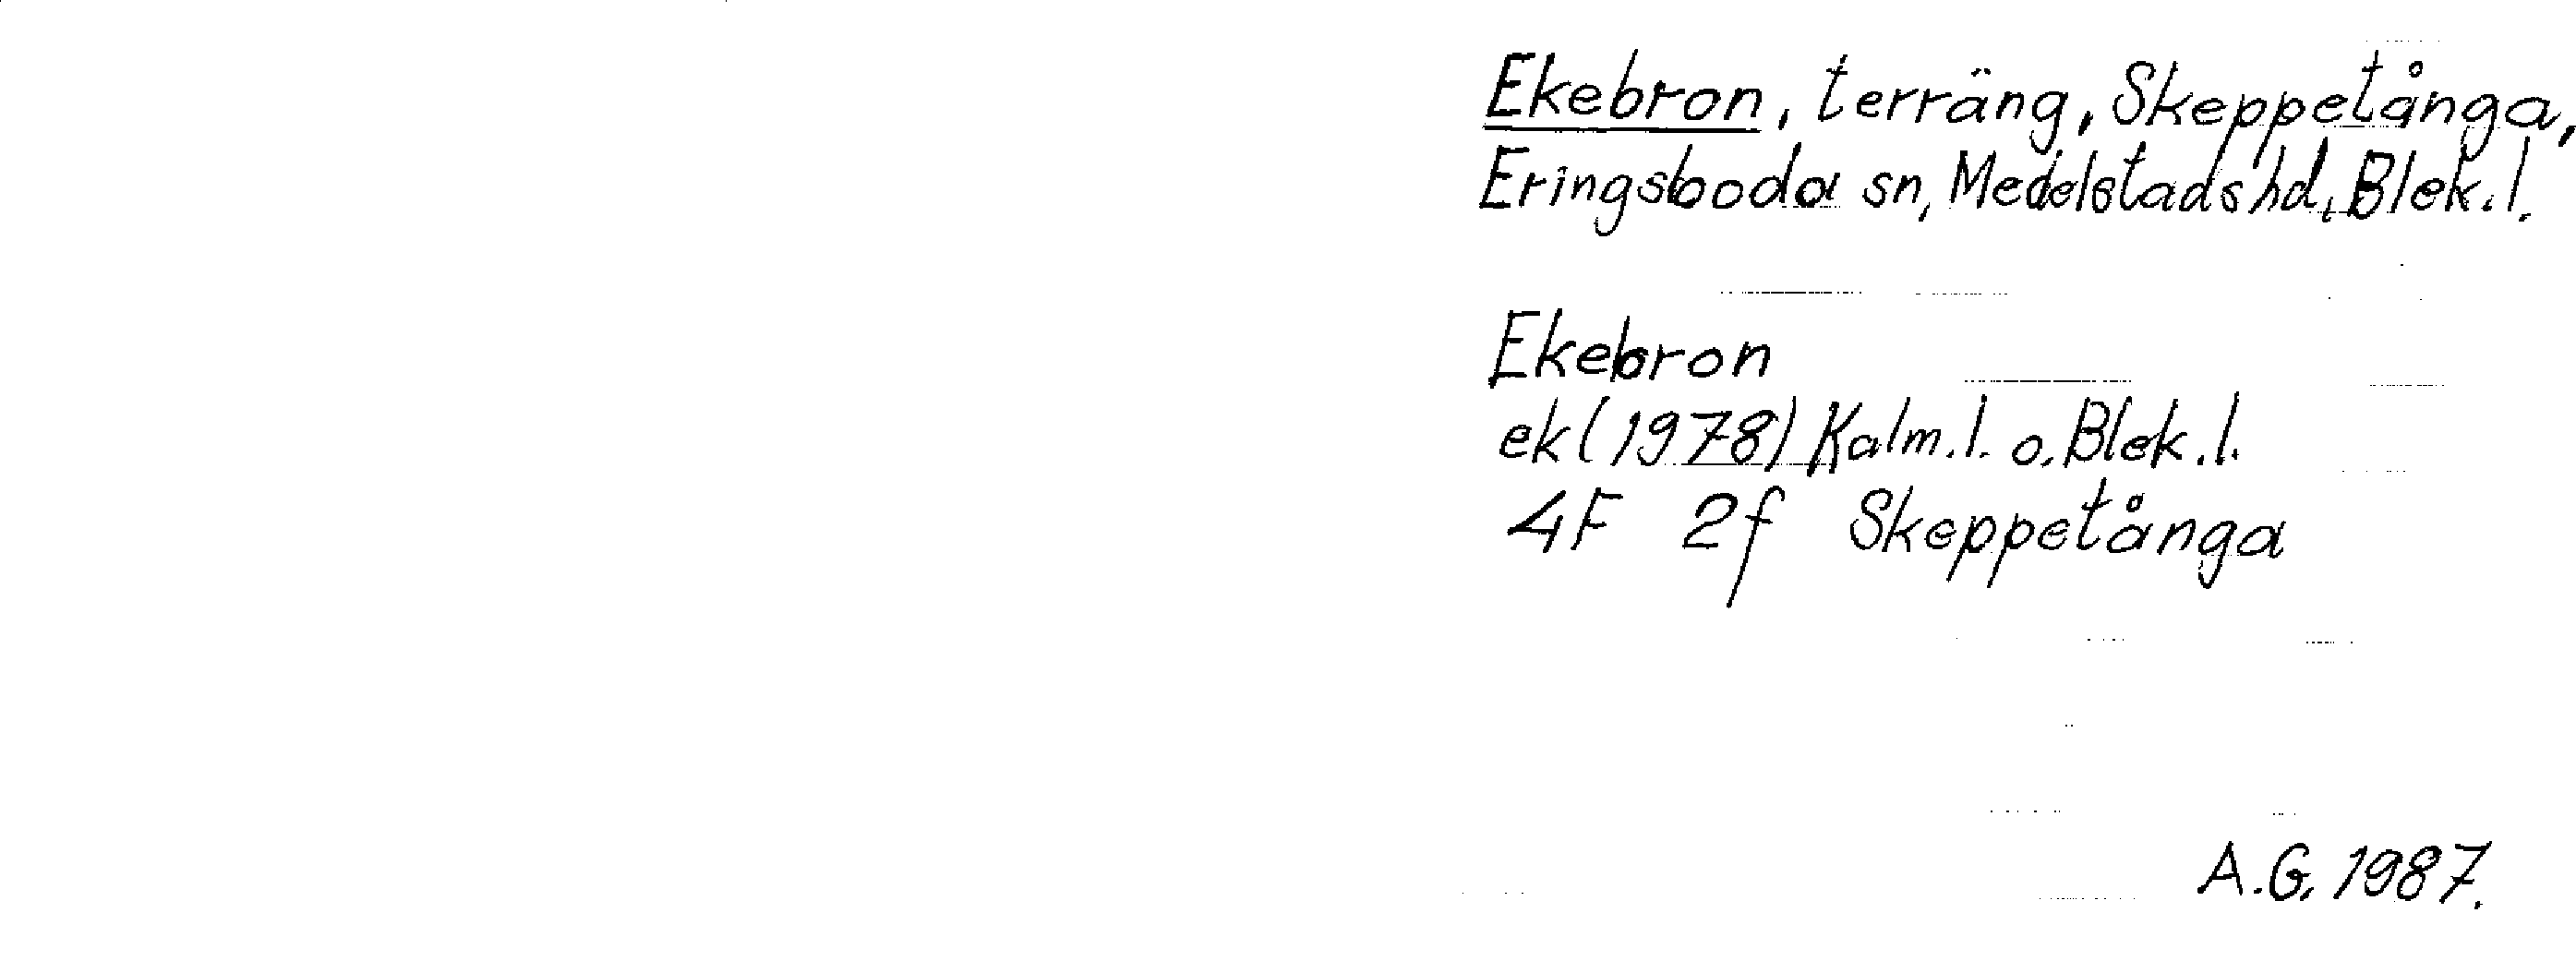 Ekebron, terräng, Skeppetånga,
Eringsboda sn, Medelstads hd, Blek.l.
Ekebron
ek (1978) Kalm.l. o. Blek.l.
4F 2f Skeppetånga
A.G. 1987.